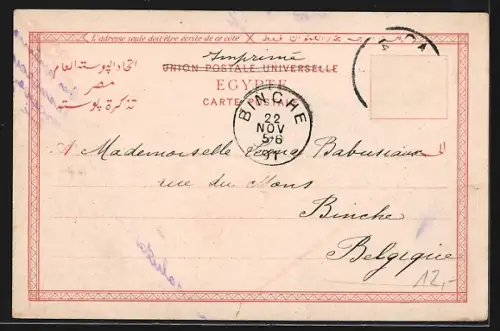 L'adresse seule doit être écrite de ce côté
Imprimé
UNION POSTALE UNIVERSELLE
EGYPTE
CARTE POSTALE
اتحاد البوستة العام
مصر
تذكرة بوسته
BINCHE
22
NOV
5-6
A Mademoiselle Babusiaux
rue du Mons
Binche
Belgique
12,-